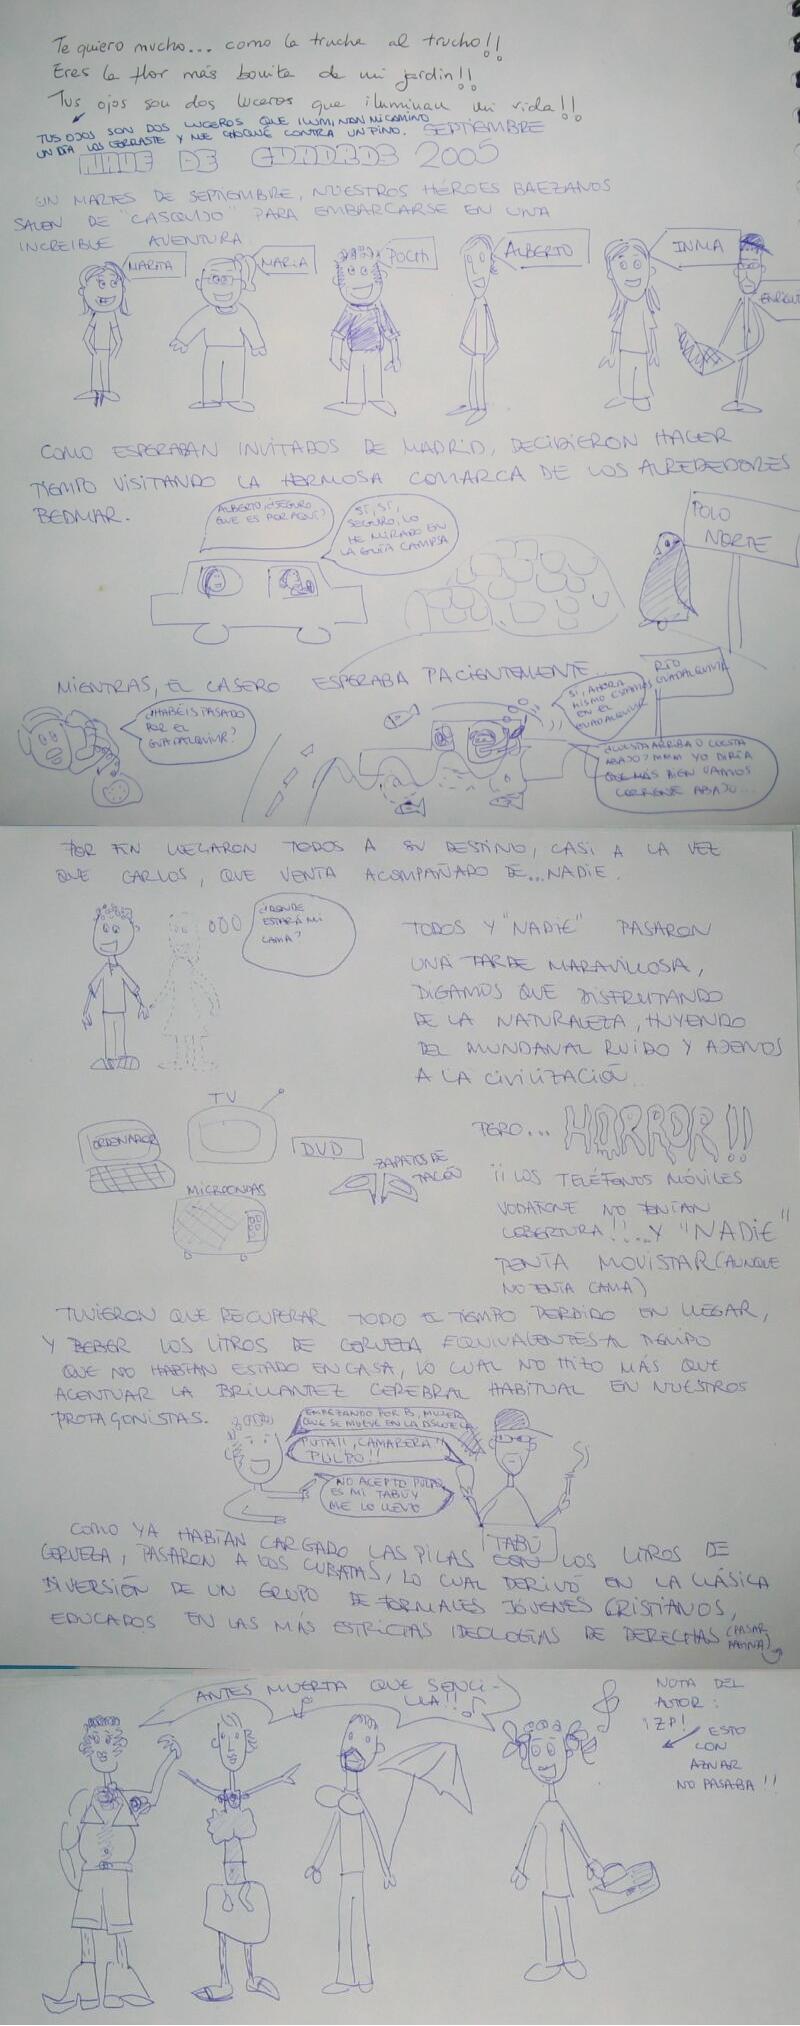 Te quiero mucho... como la trucha al trucho!!
Eres la flor más bonita de mi jardín!!
Tus ojos son dos luceros que iluminan mi vida!!
TUS OJOS SON DOS LUCEROS QUE ILUMINAN MI CAMINO
UN DÍA LOS CERRASTE Y ME CHOQUÉ CONTRA UN PINO.
SEPTIEMBRE
NAVE DE CUADROS 2005
UN MARTES DE SEPTIEMBRE, NUESTROS HÉROES BAEZANOS
SALEN DE "CASQUIJO" PARA EMBARCARSE EN UNA
INCREIBLE AVENTURA
MARITA
MARIA
POCHI
ALBERTO
INMA
COMO ESPERABAN INVITADOS DE MADRID, DECIDIERON HACER
TIEMPO VISITANDO LA HERMOSA COMARCA DE LOS ALREDEDORES
BEDMAR.
ALBERTO, ¿SEGURO
QUE ES POR AQUÍ?
SÍ, SÍ,
SEGURO, LO
HE MIRADO EN
LA GUÍA CAMPSA
POLO
NORTE
MIENTRAS, EL CASERO ESPERABA PACIENTEMENTE
¿HABÉIS PASADO
POR EL
GUADALQUIVIR?
SÍ, AHORA
MISMO ESTAMOS
EN EL
GUADALQUIVIR
RÍO
GUADALQUIVIR
¿CUESTA ARRIBA O CUESTA
ABAJO? MMM YO DIRÍA
QUE MÁS BIEN VAMOS
CORRIENTE ABAJO...
POR FIN LLEGARON TODOS A SU DESTINO, CASI A LA VEZ
QUE CARLOS, QUE VENÍA ACOMPAÑADO DE... NADIE.
¿DONDE
ESTARÁ MI
CAMA?
TODOS Y "NADIE" PASARON
UNA TARDE MARAVILLOSA,
DIGAMOS QUE DISFRUTANDO
DE LA NATURALEZA, HUYENDO
DEL MUNDANAL RUIDO Y AJENOS
A LA CIVILIZACIÓN.
ORDENADOR
TV
DVD
ZAPATOS DE
TACÓN
MICROONDAS
PERO... HORROR!!
¡¡LOS TELÉFONOS MÓVILES
VODAFONE NO TENÍAN
COBERTURA!!...Y "NADIE"
TENÍA MOVISTAR (AUNQUE
NO TENÍA CAMA)
TUVIERON QUE RECUPERAR TODO EL TIEMPO PERDIDO EN LLEGAR,
Y BEBER LOS LITROS DE CERVEZA EQUIVALENTES AL TIEMPO
QUE NO HABÍAN ESTADO EN CASA, LO CUAL NO HIZO MÁS QUE
ACENTUAR LA BRILLANTEZ CEREBRAL HABITUAL EN NUESTROS
PROTAGONISTAS.
EMPEZANDO POR B, MUJER
QUE SE MUEVE EN LA DISCOTECA
PUTA!!, CAMARERA!!
PULPO!!
NO ACEPTO PULPO
ES MI TABÚ Y
ME LO LLEVO
TABÚ
COMO YA HABÍAN CARGADO LAS PILAS CON LOS LITROS DE
CERVEZA, PASARON A LOS CUBATAS, LO CUAL DERIVÓ EN LA CLÁSICA
DIVERSIÓN DE UN GRUPO DE FORMALES JÓVENES CRISTIANOS,
EDUCADOS EN LAS MÁS ESTRICTAS IDEOLOGÍAS DE DERECHAS (PASAR
PÁGINA)
ANTES MUERTA QUE SENCI-
LLA!!
NOTA DEL
AUTOR:
¡ZP!
ESTO
CON
AZNAR
NO PASABA!!